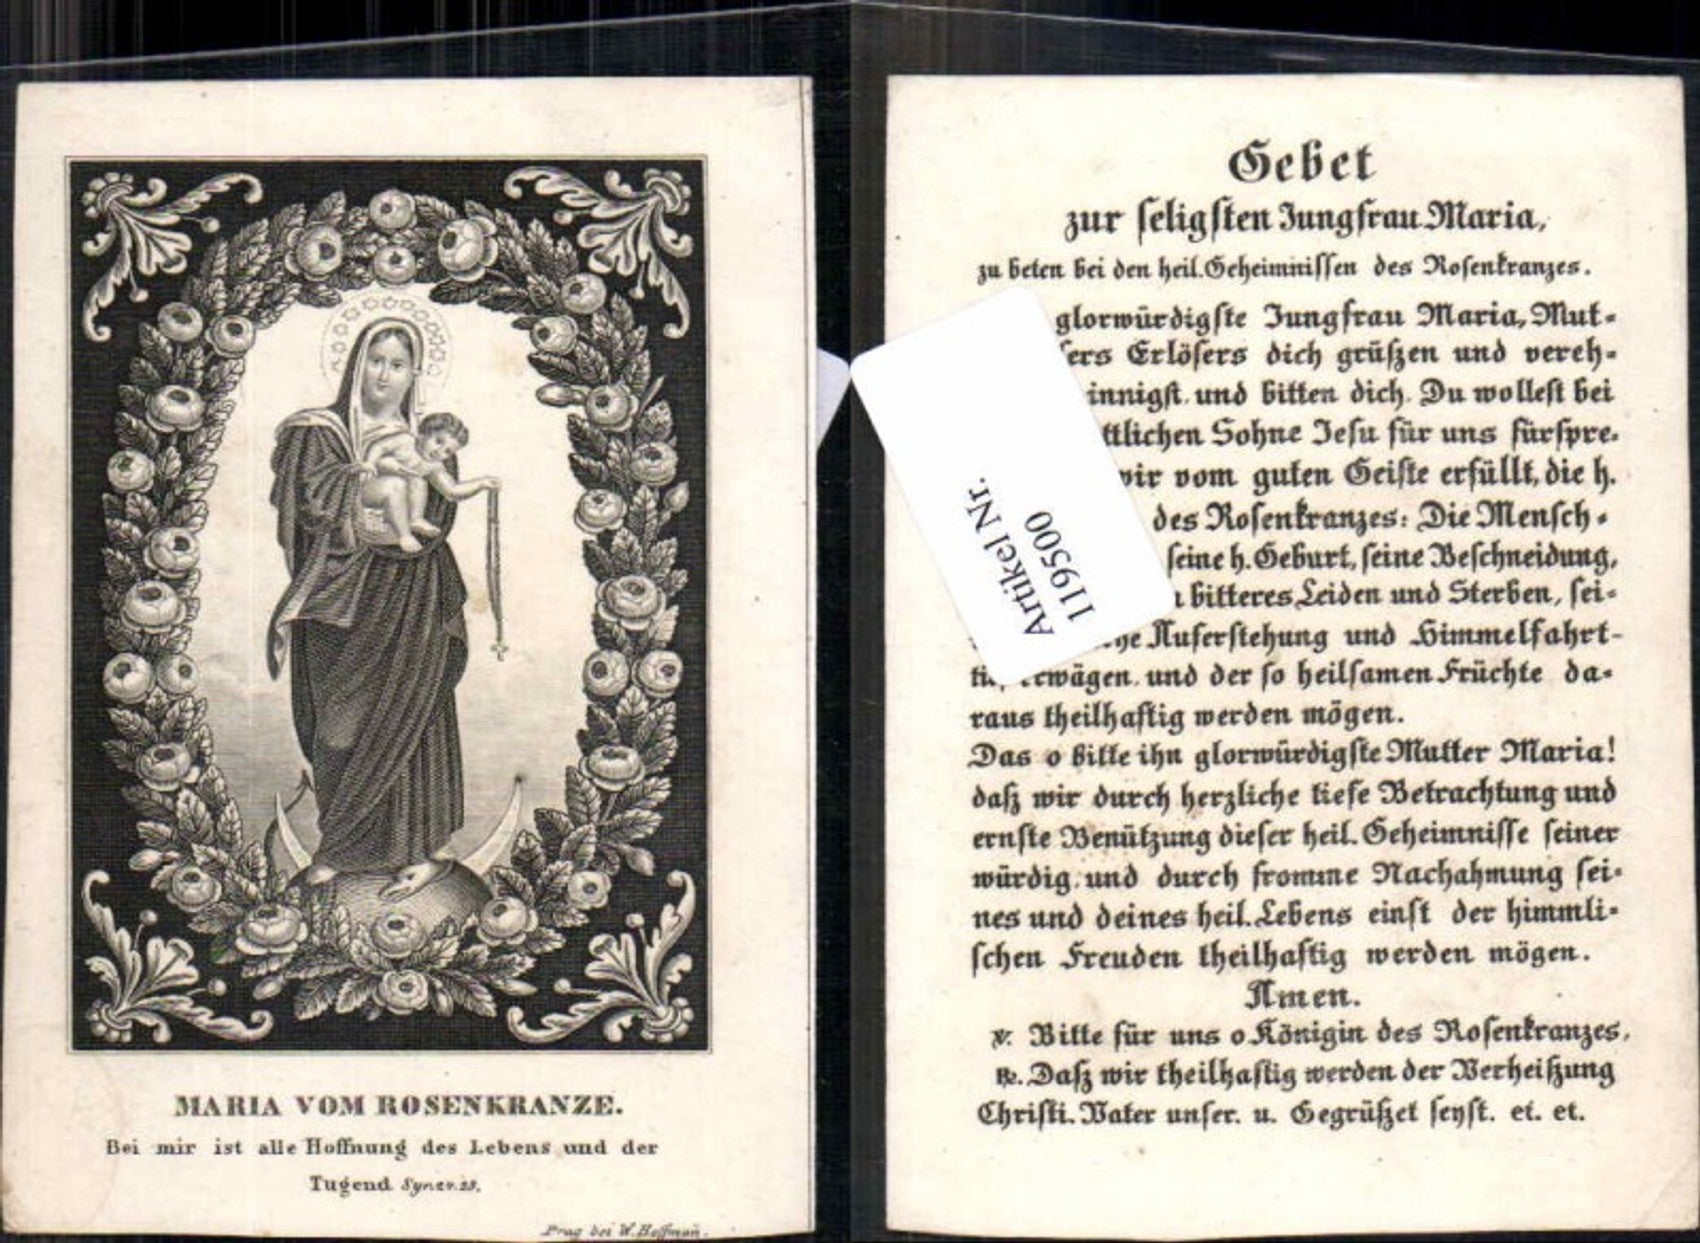 MARIA VOM ROSENKRANZE.
Bei mir ist alle Hoffnung des Lebens und der
Tugend
Prag bei W. Hoffman.
Gebet
zur ſeligſten Jungfrau Maria,
zu beten bei den heil. Geheimniſſen des Roſenkranzes.
glorwürdigſte Jungfrau Maria, Mut-
ſers Erlöſers dich grüßen und vereh-
innigſt, und bitten dich. Du wolleſt bei
ttlichen Sohne Jeſu für uns fürſpre-
wir vom guten Geiſte erfüllt, die h.
des Roſenkranzes: Die Menſch-
ſeine h. Geburt, ſeine Beſchneidung,
bitteres Leiden und Sterben, ſei-
he Auferſtehung und Himmelfahrt-
erwägen, und der ſo heilſamen Früchte da-
raus theilhaftig werden mögen.
Das o bitte ihn glorwürdigſte Mutter Maria!
daß wir durch herzliche tiefe Betrachtung und
ernſte Benützung dieſer heil. Geheimniſſe ſeiner
würdig, und durch fromme Nachahmung ſei-
nes und deines heil. Lebens einſt der himmli-
ſchen Freuden theilhaftig werden mögen.
Amen.
℣. Bitte für uns o Königin des Roſenkranzes,
℟. Daß wir theilhaftig werden der Verheißung
Chriſti. Vater unſer. u. Gegrüßet ſeyſt. et. et.
Artikel Nr.
119500